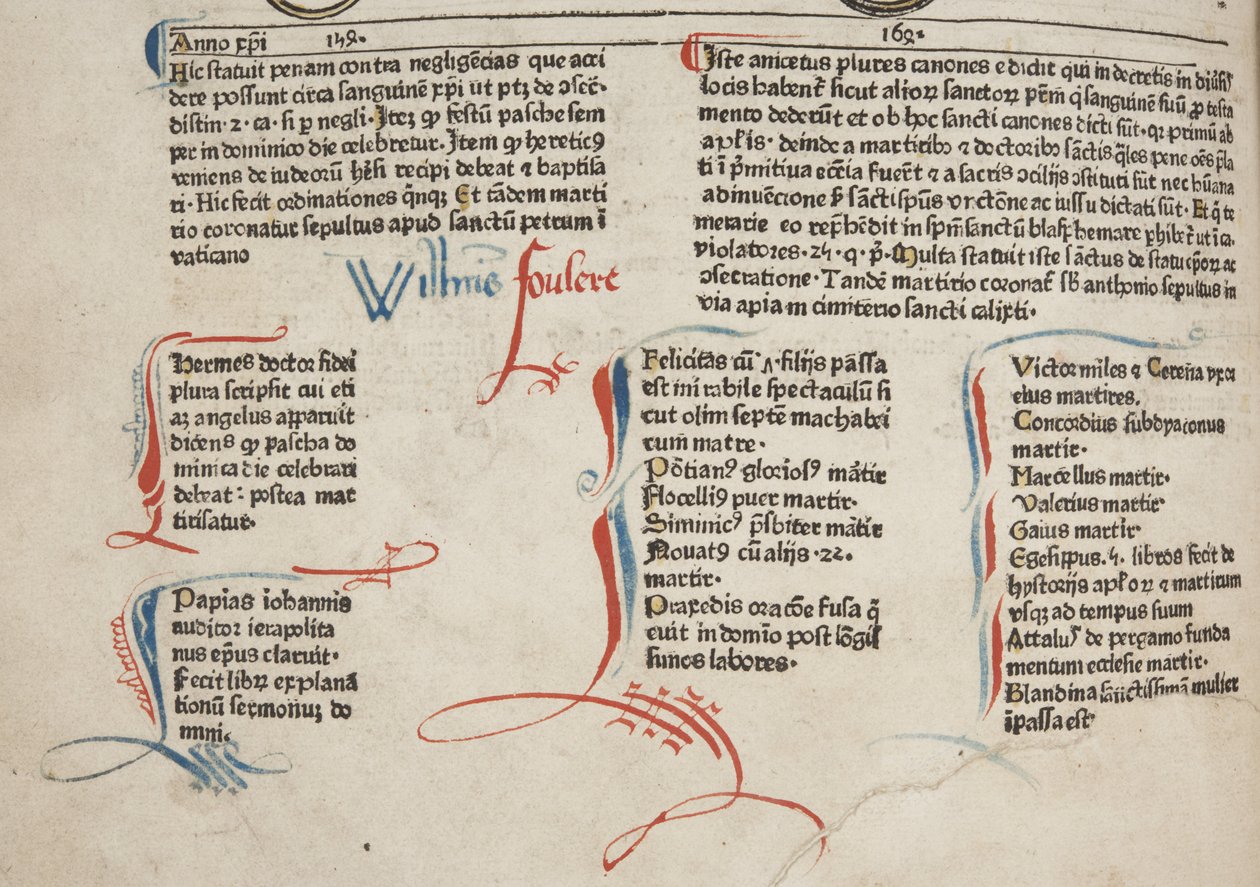 Anno xp̄i 149.
Hic statuit penam contra negligēcias que acci
dere possunt circa sanguinē xp̄i ut ptꝫ de ↄsec̄.
distin. 2. ca. si ꝑ negli. Iteꝫ ꝙ festū pasche sem
per in dominico die celebretur. Item ꝙ heretic⁹
veniens de iudeorū recipi debeat ⁊ baptisa
ri. Hic fecit ordinationes qͥnqꝫ Et tādem marti
rio coronatur sepultus apud sanctū petrum ī
vaticano
Willm̄s foulere
169.
Iste anicetus plures canones edidit qui in decretis in
locis habent̄ sicut alioꝝ sanctoꝝ sanguinē suū ꝓ testa
mento dederūt et ob hoc sancti canones dicti sūt. qꝛ primū ab
apl̄is. deinde a martiribꝰ ⁊ doctoribꝰ sāctis q̄les pene oēs
ti ī p̄mitiua ecc̄ia fuer̄t ⁊ a sacris ↄcilijs ↄstituti sūt nec hūana
adinuēcione ac iussu dictati sūt. Et q̇ te
merarie eo rep̄hēdit in sp̄m sanctū blasphemare
violatores. 25. q. p̄. Multa statuit iste sāctus de statu ep̄oꝝ ac
ↄsecratione. Tandē martirio coronat̄ sb̄ anthonio sepultus in
via apia in cimiterio sancti calixti.
Hermes doctor fidei
plura scripsit cui eti
aꝫ angelus apparuit
dicens ꝙ pascha do
minica die celebrari
debeat: postea mar
tirisatur.
Papias iohannis
auditor ierapolita
nus ep̄us claruit.
Fecit libꝝ explana
tionū sermonuꝫ do
mini.
Felicitas cū .ʌ. filijs passa
est mirabile spectaculū si
cut olim septē machabei
cum matre.
Pōtian⁹ glorios⁹ mārtir
Flocelli⁹ puer martir.
Siminic⁹ p̄sbiter mārtir
Nouat⁹ cū alijs .22.
martir.
Praxedis oracōe fusa q̇
euit in domīo post lōgis
simos labores.
Victor miles ⁊ Corena vxor
eius martires.
Concordius subdyaconus
martir.
Marcellus martir.
Valerius martir
Gaius martir.
Egesippus .5. libros fecit de
hystorijs apl̄oꝝ ⁊ martirum
vsqꝫ ad tempus suum
Attalus de pergamo funda
mentum ecclesie martir.
Blandina sanctissima mulier
īpassa est